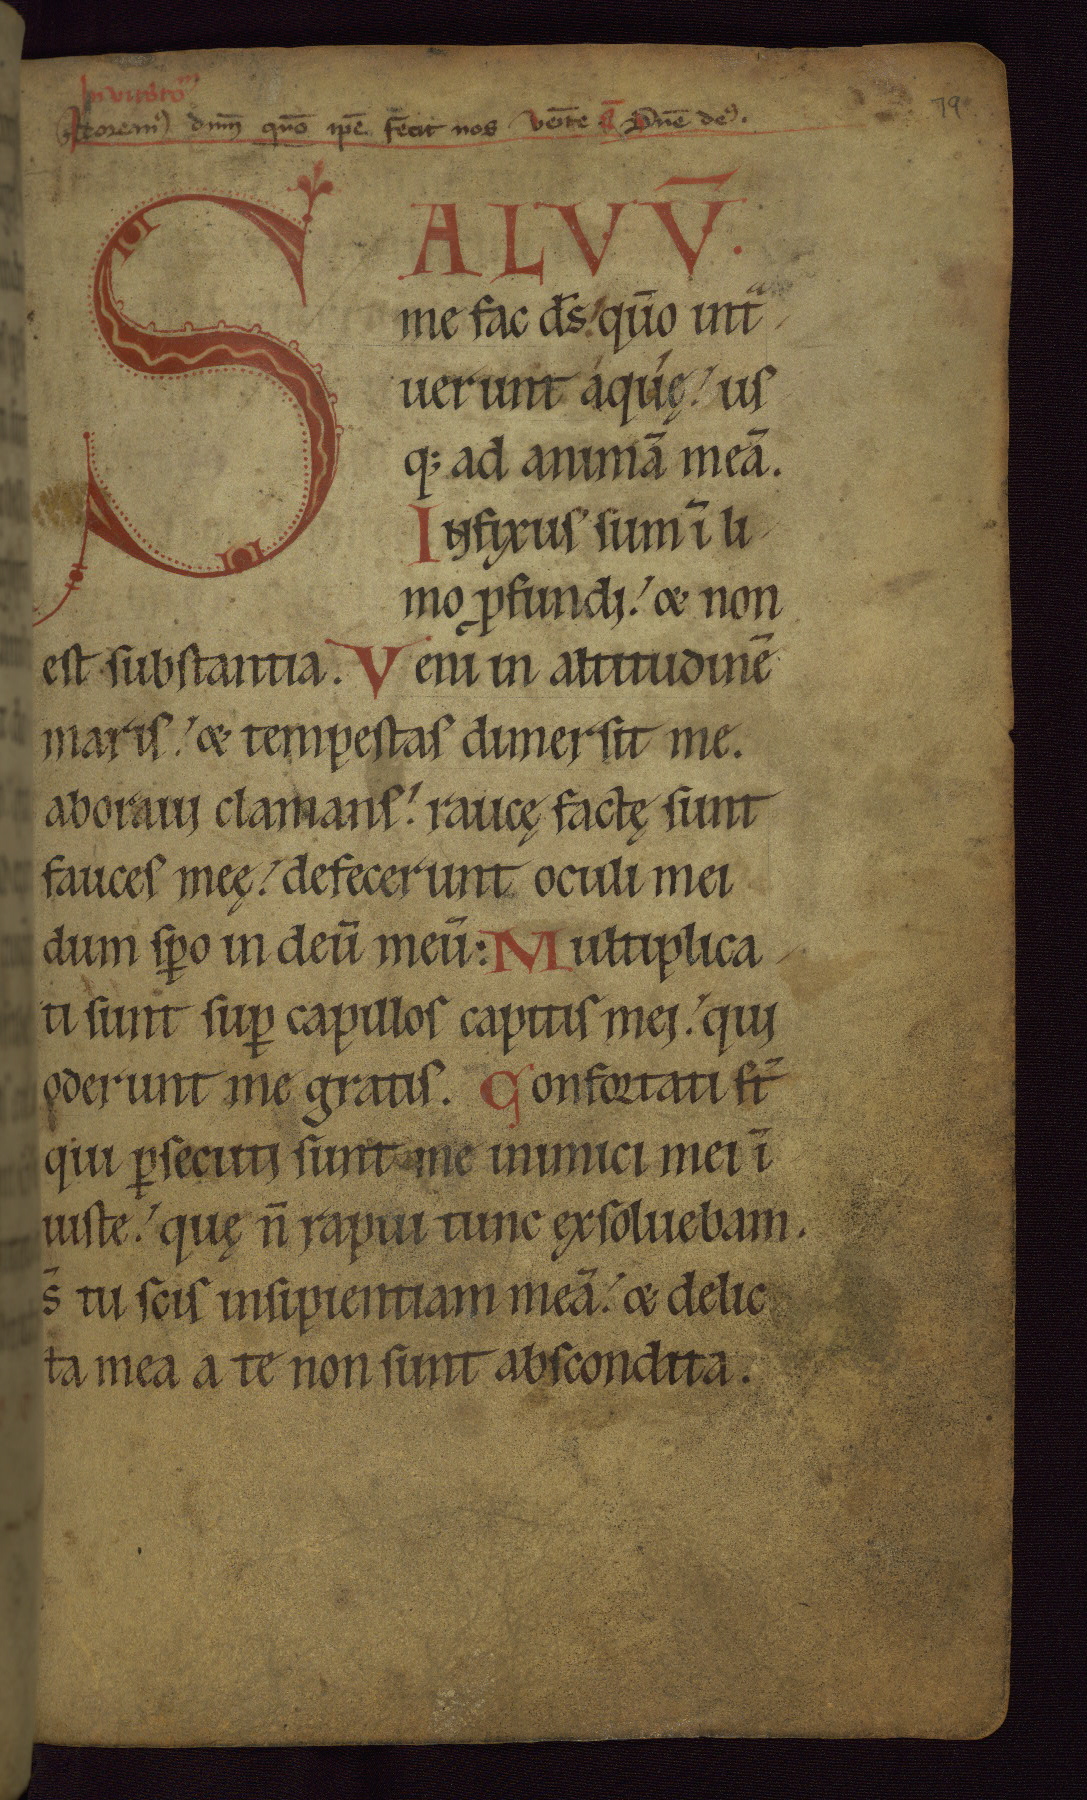 Invitato᷒ᵐ
Adorem⁹ dnm̄ quō ip̄e fecit nos Venite p̄s Dn̄e de⁹.
79
SALVV̄.
me fac ds̄! qūo int̄ᵃ
uerunt aquę! us
q; ad animā meā.
Infixus sum ī li
mo ꝓfundi! & non
est substantia. Veni in altitudinē
maris! & tempestas dimersit me.
aboraui clamans! raucę factę sunt
fauces meę! defecerunt oculi mei
dum sp̄o in deū meū: Multiplica
ti sunt sup̄ capillos capitis mei! qui
oderunt me gratis. Confortati st̄
qui ꝑsecuti sunt me inimici mei ī
iuste! quę n̄ rapui tunc exsoluebam.
s̄ tu scis insipientiam meā! & delic
ta mea a te non sunt abscondita.